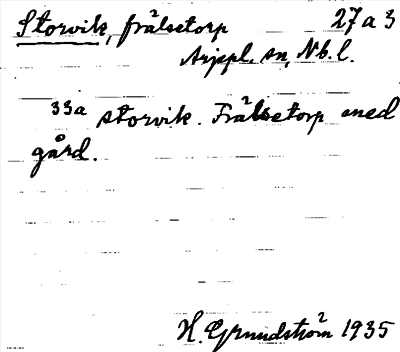 Storvik, frälsetorp 27 a 3
Arjepl. sn, Nb. l.
33a storvik. Frälsetorp med
gård.
H. Grundström 1935